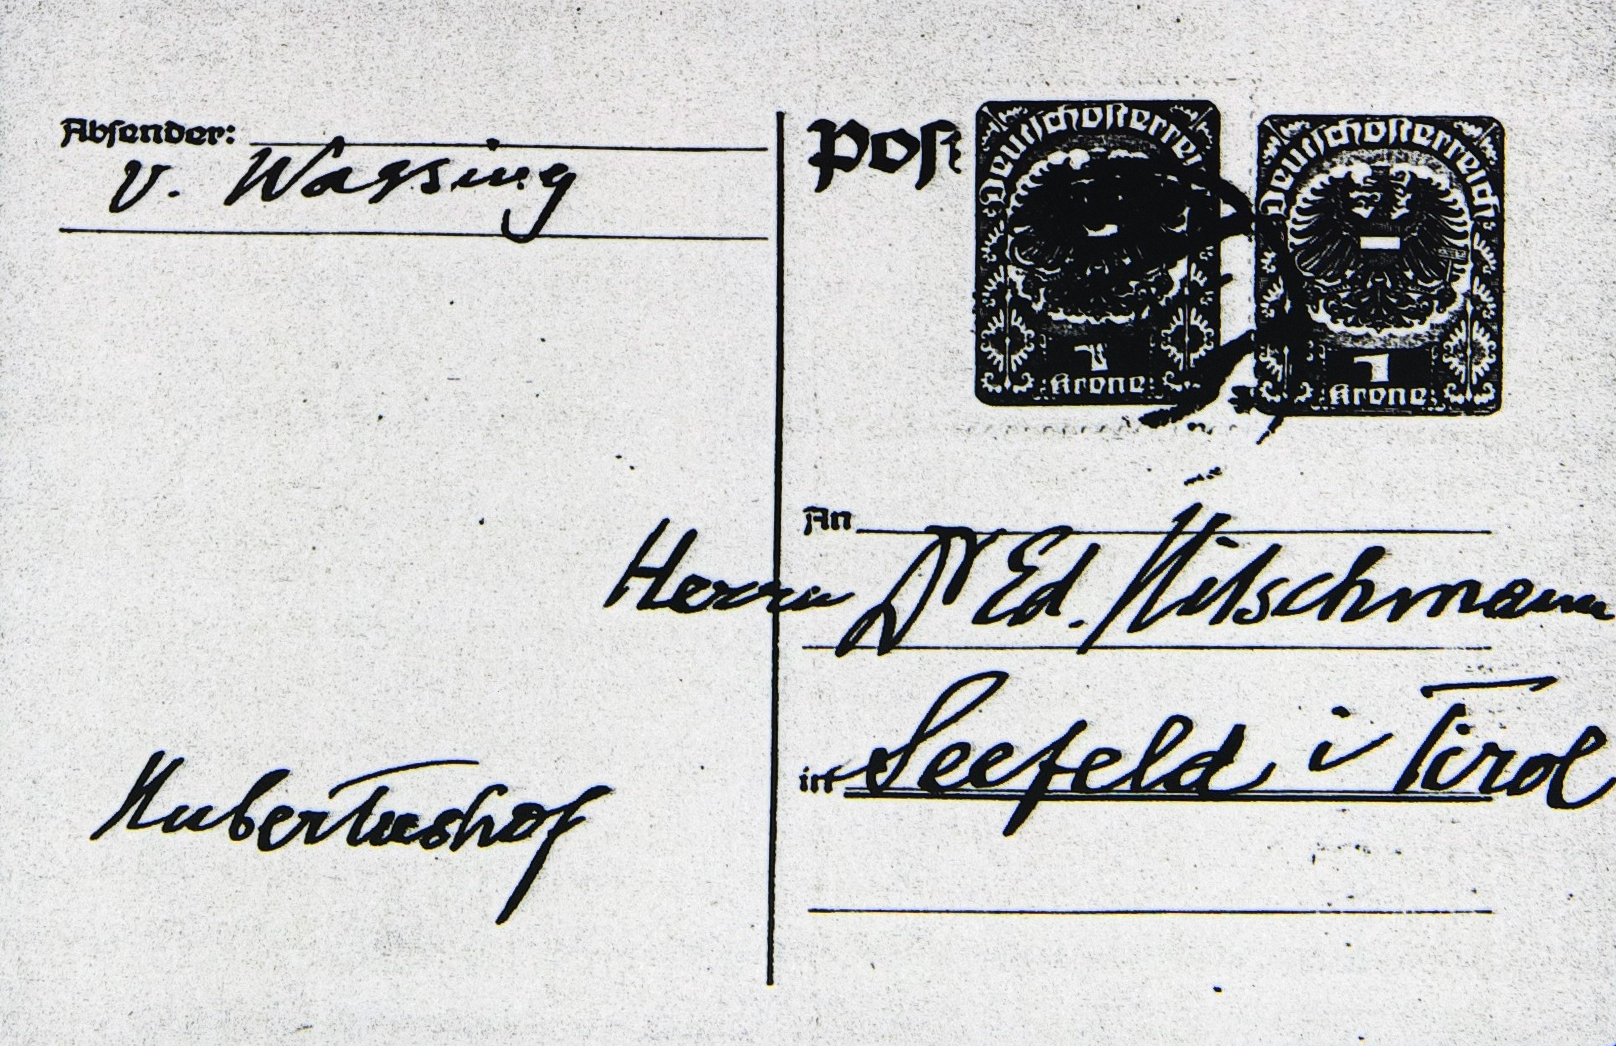 Absender:
v. Wassing
Post
Deutschösterrei
1
Krone
Deutschösterreich
1
Krone
An
Herrn Dr Ed. Hitschmann
in Seefeld i Tirol
Hubertushof